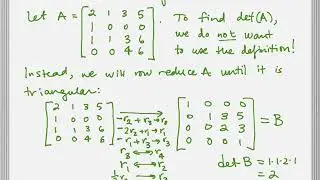 Let A = [2 1 3 5
1 0 0 0
1 1 3 6
0 0 4 6]. To find det(A),
we do not want
to use the definition!
Instead, we will row reduce A until it is
triangular:
[2 1 3 5
1 0 0 0
1 1 3 6
0 0 4 6]
-r₂ + r₃ → r₃
-2r₂ + r₁ → r₁
-r₁ + r₃ → r₃
r₃ ↔ r₄
r₁ ↔ r₂
[1 0 0 0
0 1 3 5
0 0 2 3
0 0 0 1] = B
det B = 1·1·2·1
= 2